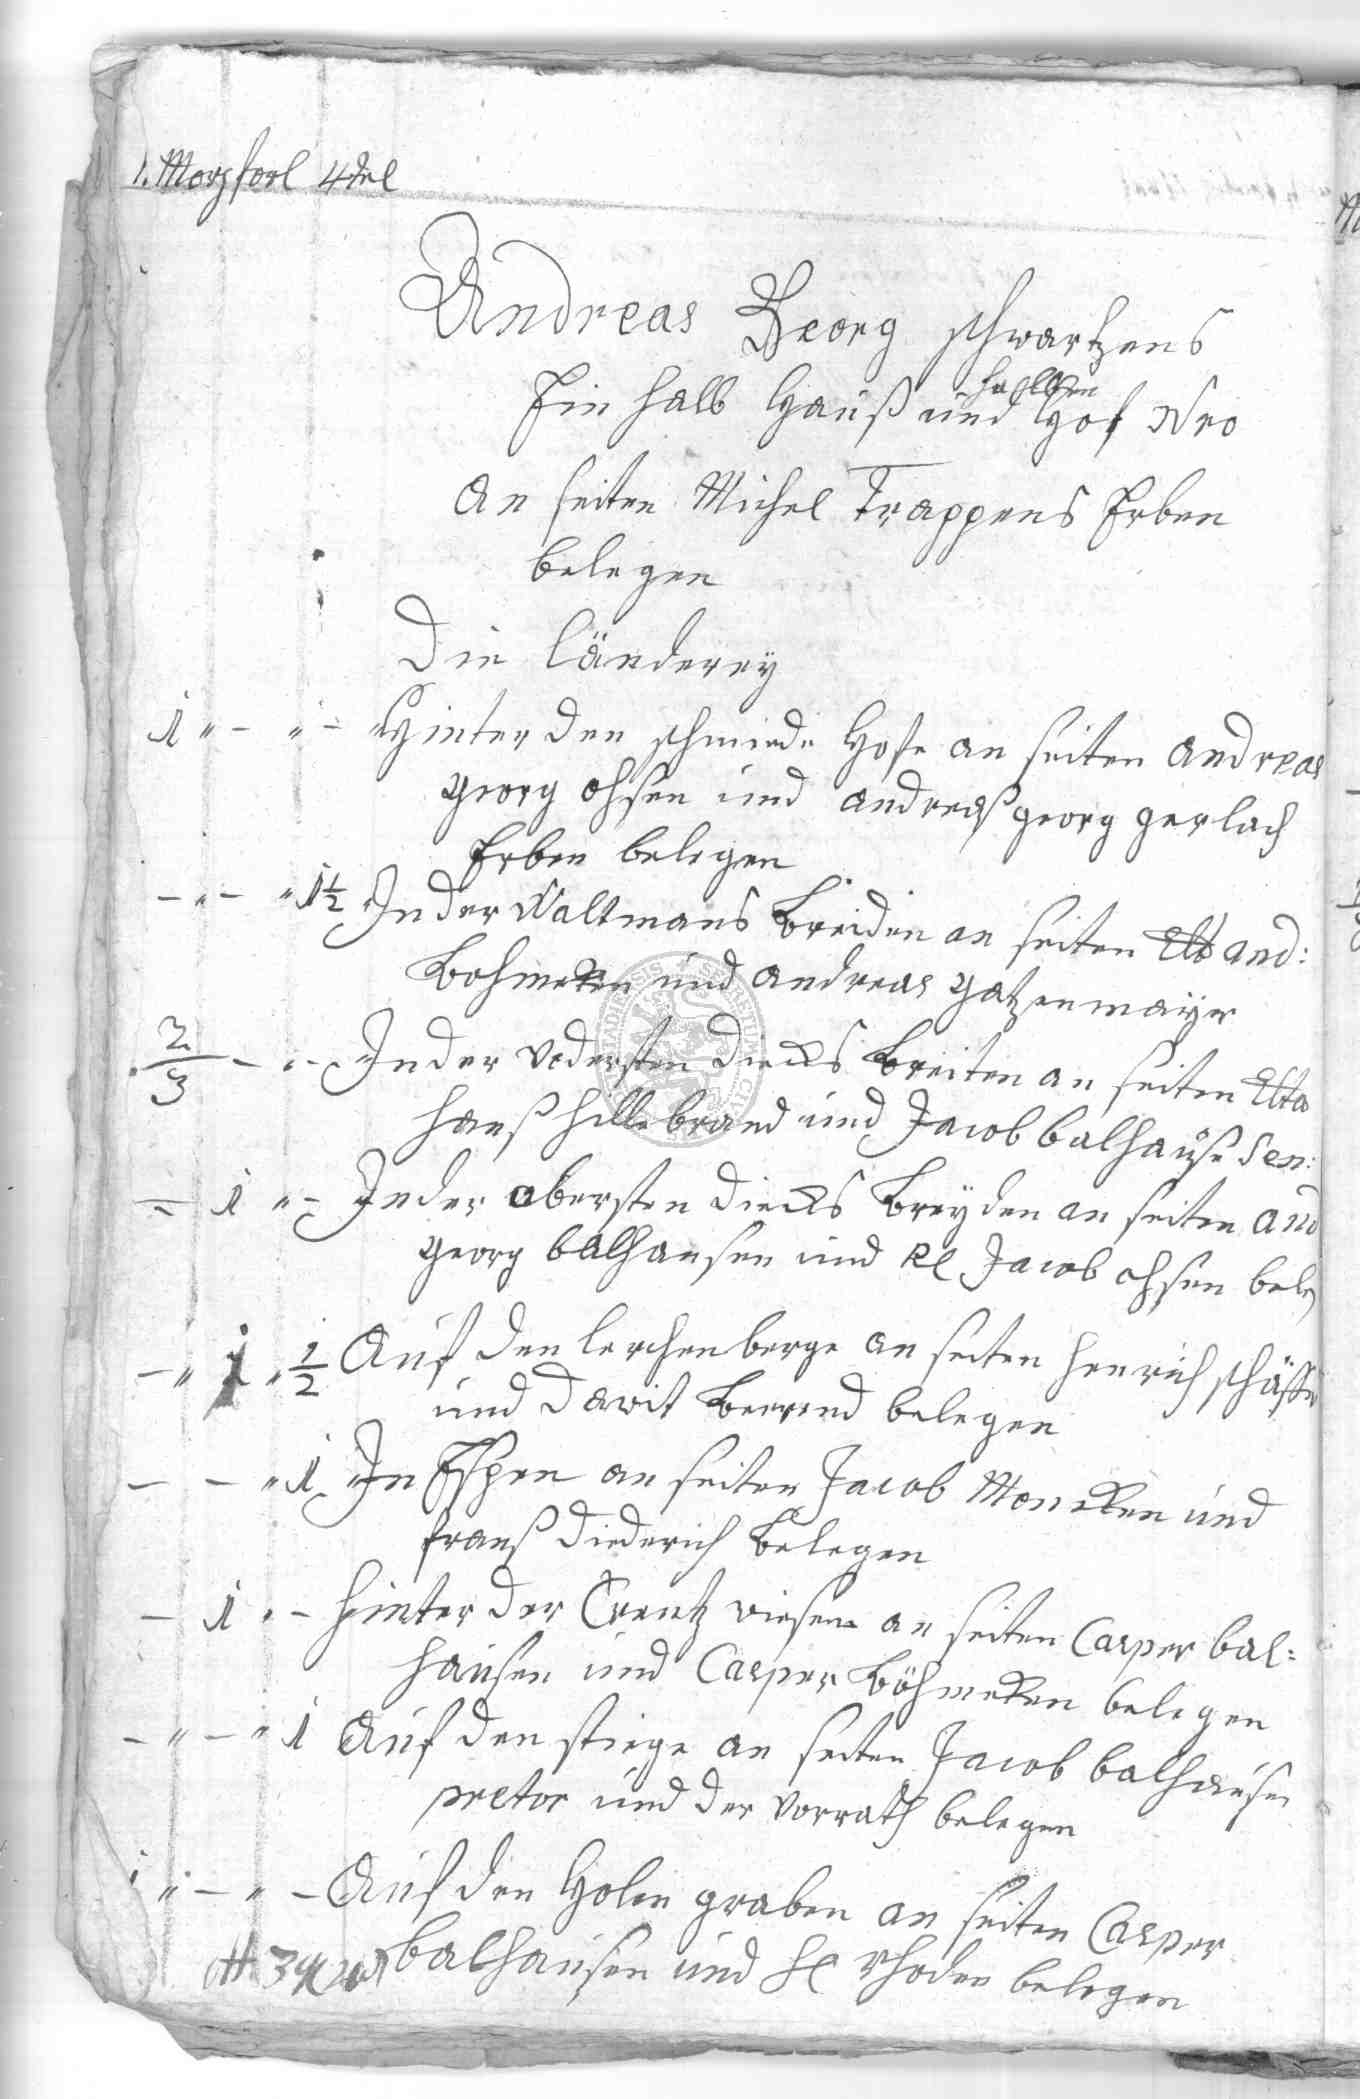 1. Morg forl 4tel
Andreas Georg Schwartzens
halben
Ein halb Hauß und Hof Nro
an seiten Michel Trappens Erben
belegen
Die Länderey
1 " - " - Hinter den schmiede Hofe an seiten Andreas
georg ohsen und andreaß georg gerlach
Erben belegen
- " - " 1½ In der Waltmans Breiden an seiten and:
Bohmeken und andreas
2/3 - " - In der dieks Breiten an seiten
hanß hillebrand und Jacob balhause Sen:
- 1 " - In der obersten dieks Breyden an seiten and
georg balhausen und Jacob ohsen beleg
- " 1 " ½ Auf den lerchen berge an seiten henrich schäffer
und Davit Berend belegen
- - " 1 In Espen an seiten Jacob Moneken und
franß Diederich belegen
- 1 " - hinter der Creutz wiesen an seiten Casper bal=
hausen und Casper Böhmeken belegen
- " - " 1 Auf den stiege an seiten Jacob balhausen
pretor und der Vorrath belegen
1 " - " - Auf den Holen graben an seiten Casper
balhausen und rhoden belegen